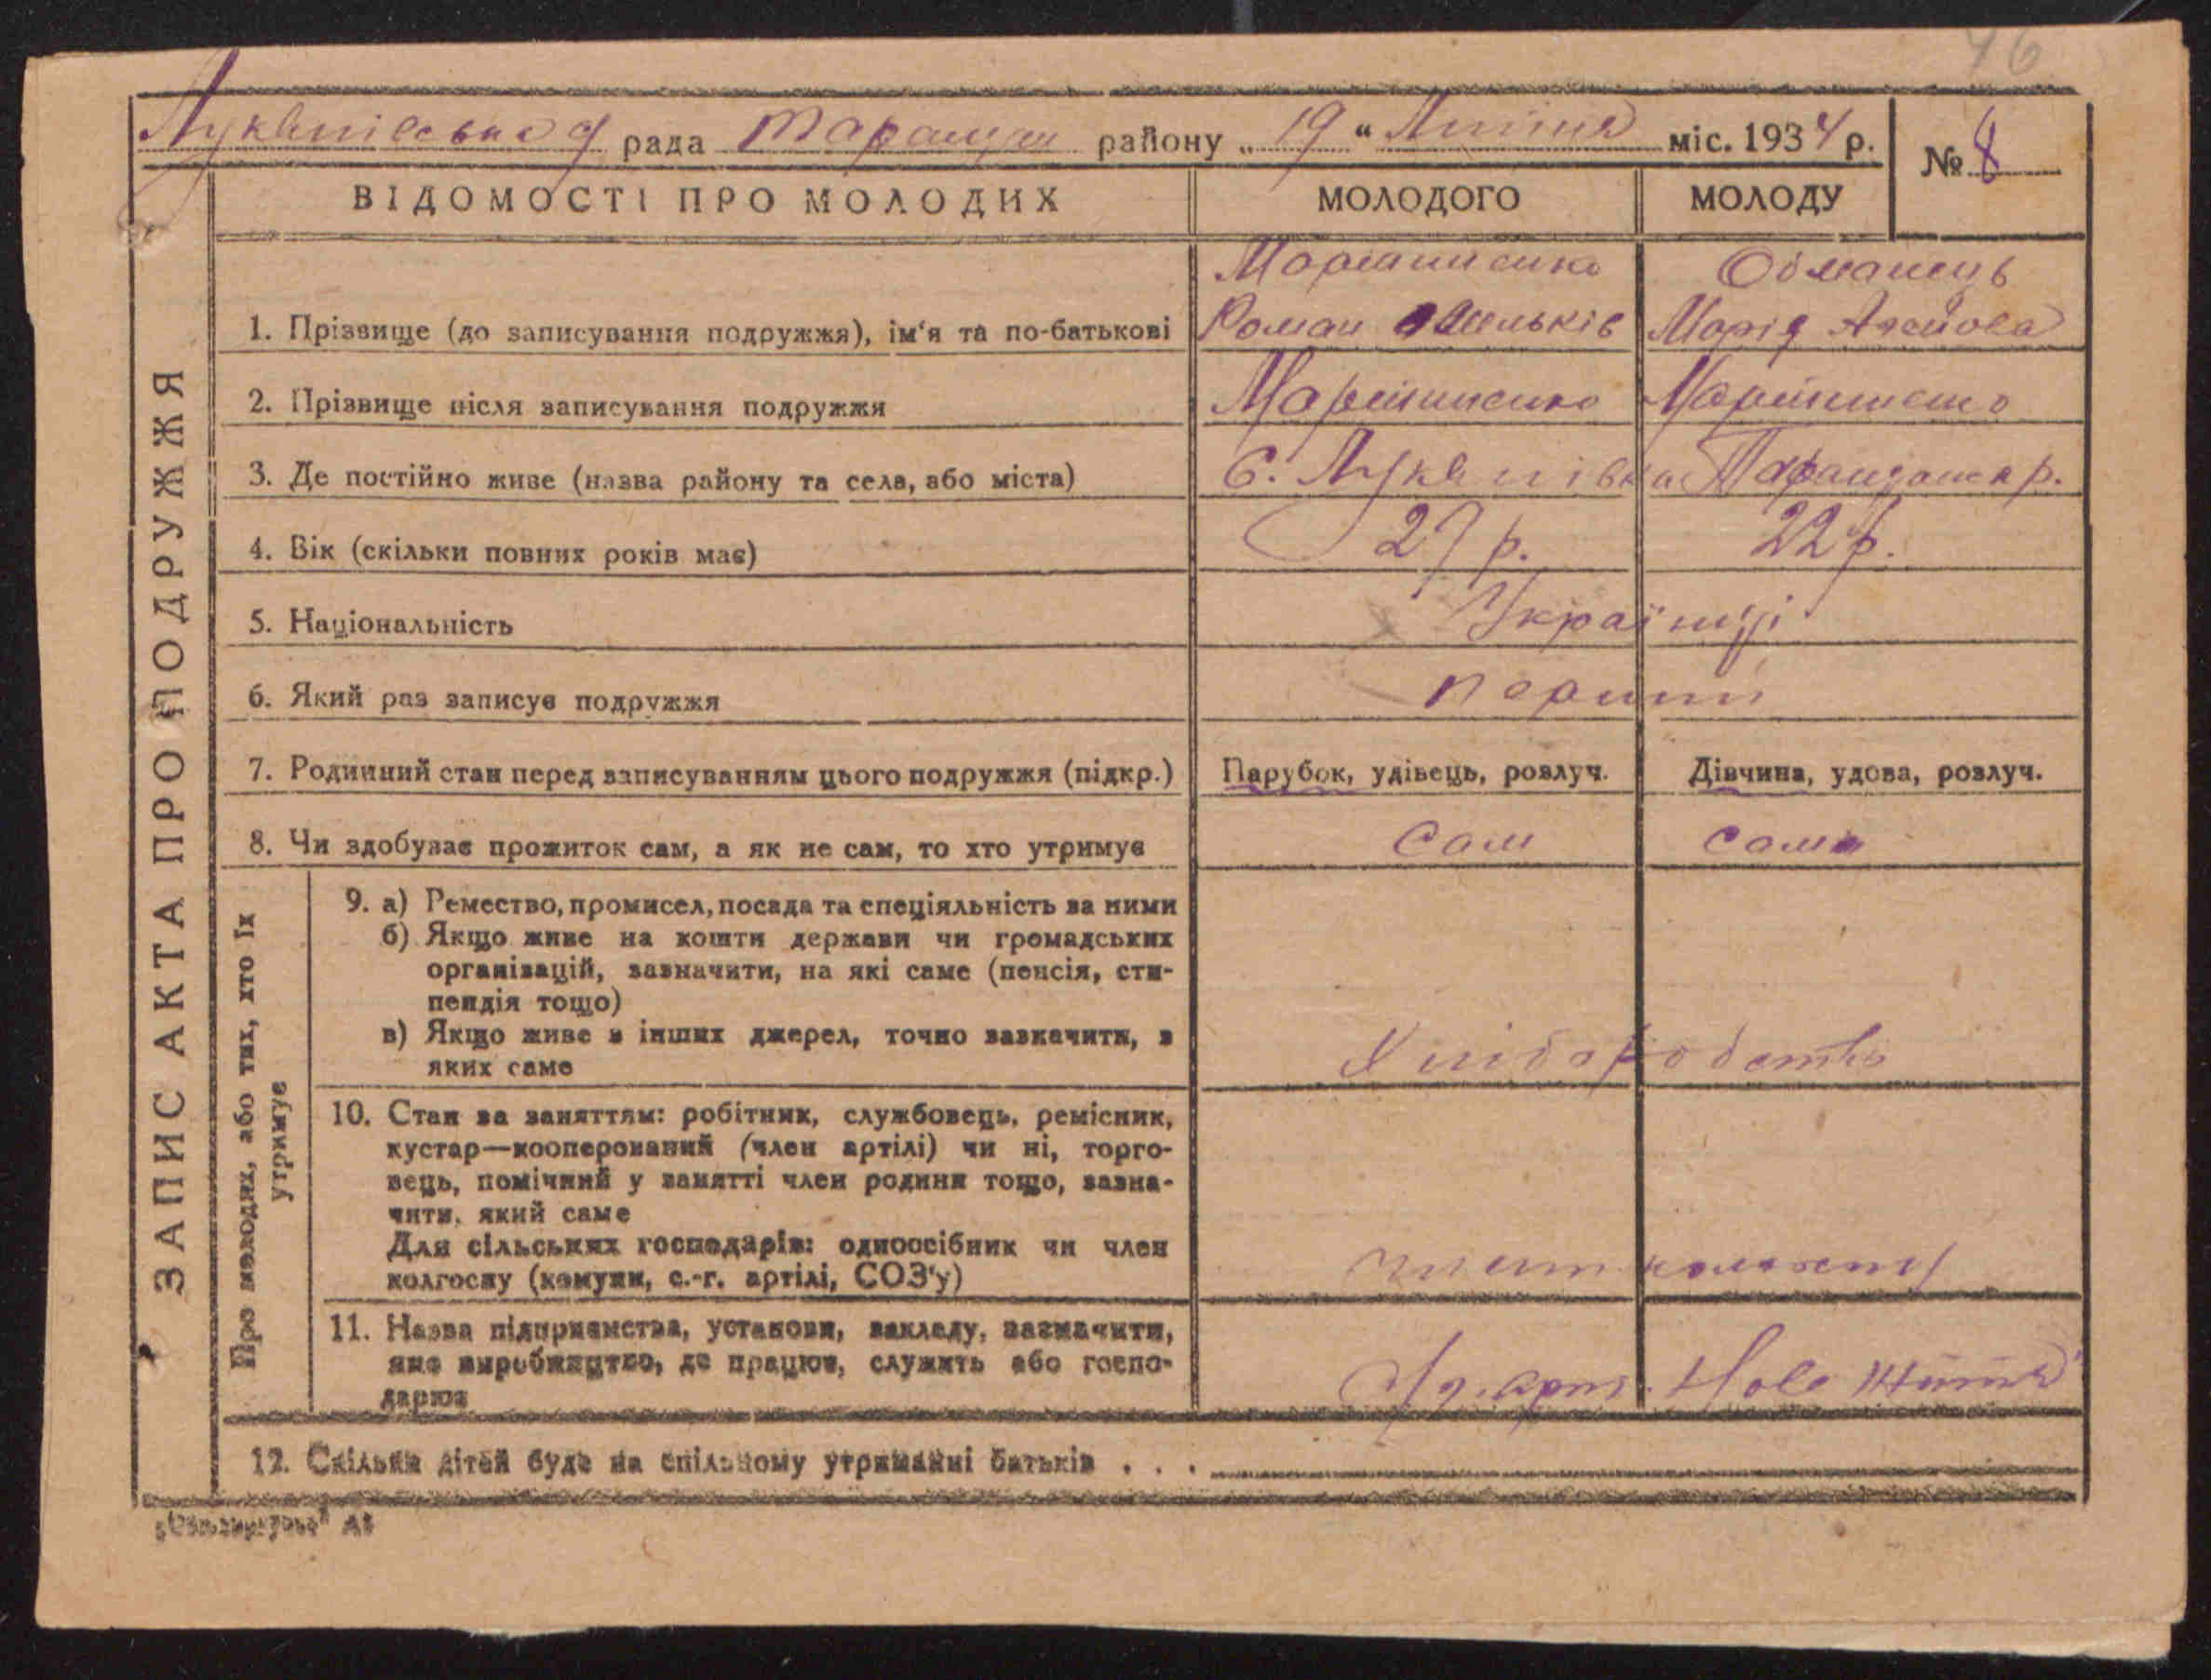 46
Лук'янівська рада Таращан району „ 19 “ Липня міс. 1934 р.
№ 8
ВІДОМОСТІ ПРО МОЛОДИХ МОЛОДОГО МОЛОДУ
ЗАПИС АКТА ПРО ПОДРУЖЖЯ
1. Прізвище (до записування подружжя), ім‘я та по-батькові
Роман Омельків
Марія
2. Прізвище після записування подружжя
3. Де постійно живе (назва району та села, або міста) С. Лук'янівка Таращанск р.
4. Вік (скільки повних років має) 27 р. 22 р.
5. Національність Українці
6. Який раз записує подружжя перший
7. Родинний стан перед записуванням цього подружжя (підкр.) Парубок, удівець, розлуч. Дівчина, удова, розлуч.
8. Чи здобуває прожиток сам, а як не сам, то хто утримує сам сама
Про молодих, або тих, хто їх
утримує
9. а) Ремество, промисел, посада та спеціяльність за ними
б) Якщо живе на кошти держави чи громадських
організацій, зазначити, на які саме (пенсія, сти-
пендія тощо)
в) Якщо живе з інших джерел, точно зазначити, з
яких саме
Хліборобств
10. Стан за заняттям: робітник, службовець, ремісник,
кустар—кооперований (член артілі) чи ні, торго-
вець, помічний у занятті член родини тощо, зазна-
чити, який саме
Для сільських господарів: одноосібник чи член
колгоспу (комуни, с.-г. артілі, СОЗ‘у)
член
11. Назва підприємства, установи, закладу, зазначити,
яке виробництво, де працює, служить або госпо-
дарює
Нове життя
12. Скільки дітей буде на спільному утриманні батьків . . .